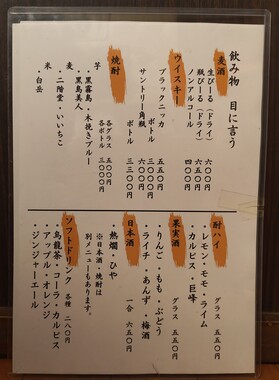 飲み物 目に言う
麦酒
生びーる(ドライ) 六〇〇円
瓶びーる(ドライ) 六〇〇円
ノンアルコール 四〇〇円
ウイスキー
ブラックニッカ 五五〇円
ボトル 三〇〇〇円
サントリー角瓶 六〇〇円
ボトル 三三〇〇円
焼酎
各グラス 五五〇円
各ボトル 三〇〇〇円
芋
・黒霧島・木挽きブルー
・黒島美人
麦
・二階堂・いいちこ
米
・白岳
酎ハイ
グラス 五五〇円
・レモン・モモ・ライム
・カルピス・巨峰
果実酒
グラス 五五〇円
・りんご・もも・ぶどう
・ライチ・あんず・梅酒
日本酒
一合 六五〇円
・熱燗・ひや
※日本酒・焼酎は
別メニューもあります。
ソフトドリンク 各種 二八〇円
・烏龍茶・コーラ・カルピス
・アップル・オレンジ
・ジンジャーエール